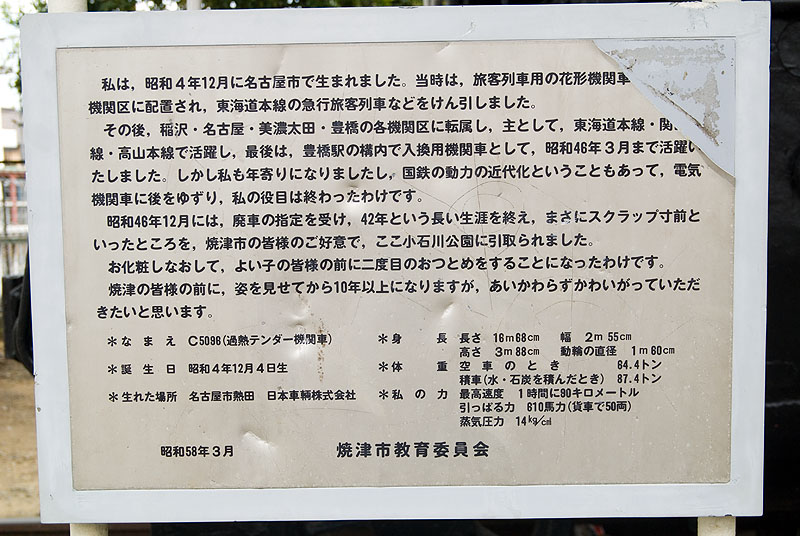 私は，昭和４年12月に名古屋市で生まれました。当時は，旅客列車用の花形機関車
機関区に配置され，東海道本線の急行旅客列車などをけん引しました。
その後，稲沢・名古屋・美濃太田・豊橋の各機関区に転属し，主として，東海道本線・関
線・高山本線で活躍し，最後は，豊橋駅の構内で入換用機関車として，昭和46年３月まで活躍い
たしました。しかし私も年寄りになりましたし，国鉄の動力の近代化ということもあって，電気
機関車に後をゆずり，私の役目は終わったわけです。
昭和46年12月には，廃車の指定を受け，42年という長い生涯を終え，まさにスクラップ寸前と
いったところを，焼津市の皆様のご好意で，ここ小石川公園に引取られました。
お化粧しなおして，よい子の皆様の前に二度目のおつとめをすることになったわけです。
焼津の皆様の前に，姿を見せてから10年以上になりますが，あいかわらずかわいがっていただ
きたいと思います。
＊なまえ Ｃ5096（過熱テンダー機関車）
＊誕生日 昭和４年12月４日生
＊生れた場所 名古屋市熱田 日本車輌株式会社
＊身長 長さ 16ｍ68㎝ 幅 2ｍ55㎝
高さ 3ｍ88㎝ 動輪の直径 1ｍ60㎝
＊体重 空車のとき 64.4トン
積車（水・石炭を積んだとき） 87.4トン
＊私の力 最高速度 １時間に90キロメートル
引っぱる力 610馬力（貨車で50両）
蒸気圧力 14㎏/㎠
昭和58年３月 焼津市教育委員会